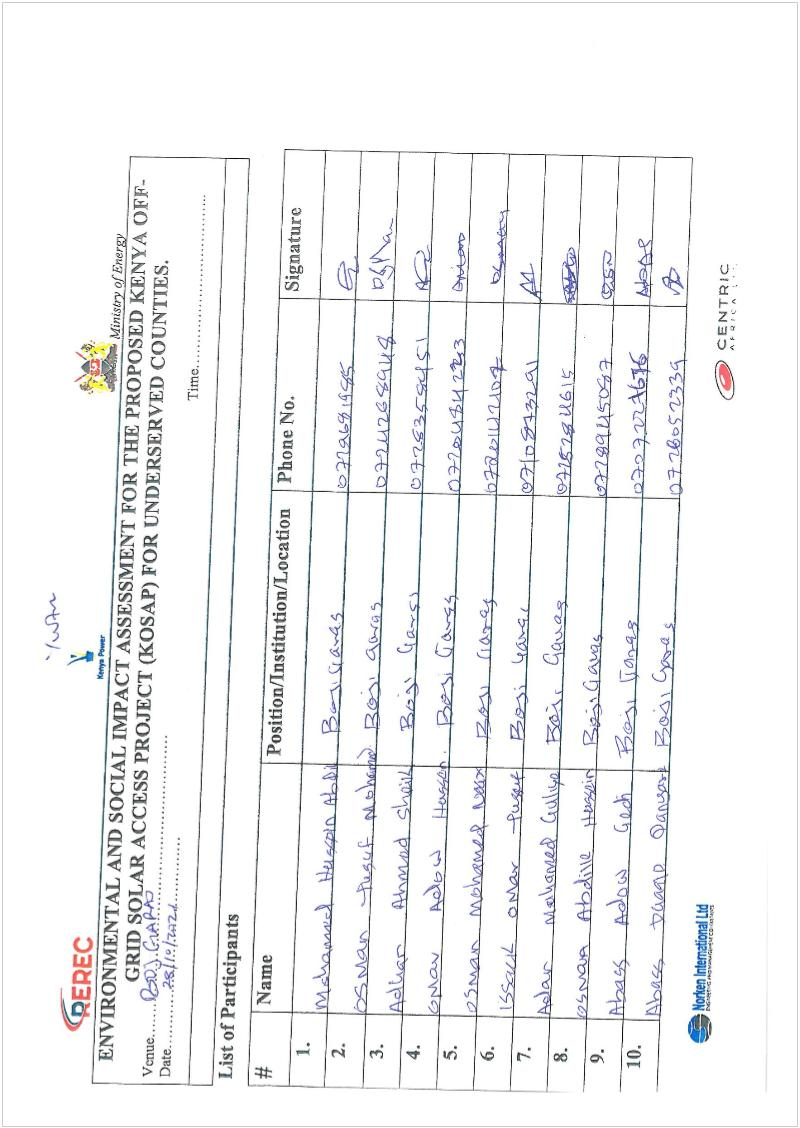 YWAN
REREC
Kenya Power
Ministry of Energy
ENVIRONMENTAL AND SOCIAL IMPACT ASSESSMENT FOR THE PROPOSED KENYA OFF-
GRID SOLAR ACCESS PROJECT (KOSAP) FOR UNDERSERVED COUNTIES.
Venue....Boji Garas
Date....28/10/2021 Time....
List of Participants
# Name Position/Institution/Location Phone No. Signature
1. Mohammed Hussein Abdi Boji Garas 0729681985
2. Osman Yusuf Mohamed Boji Garas 0724268948
3. Adhar Ahmed Sheik Boji Garas 0728358451
4. Omar Adow Hassan Boji Garas 0720484283
5. Osman Mohamed Boji Garas
6. Issack Omar Yusuf Boji Garas 0710873291
7. Adar Mohamed Boji Garas 0725784615
8. Osman Abdille Hussein Boji Garas 0728945087
9. Abass Adow Gedi Boji Garas
10. Abass Boji Garas 0728052339
Norken International Ltd
CENTRIC
AFRICA LTD